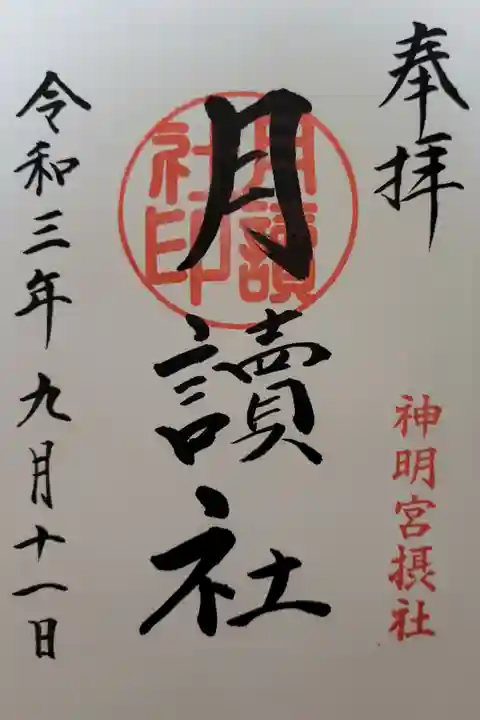 奉拝
神明宮摂社
月讀社
月讀
社印
令和三年九月十一日